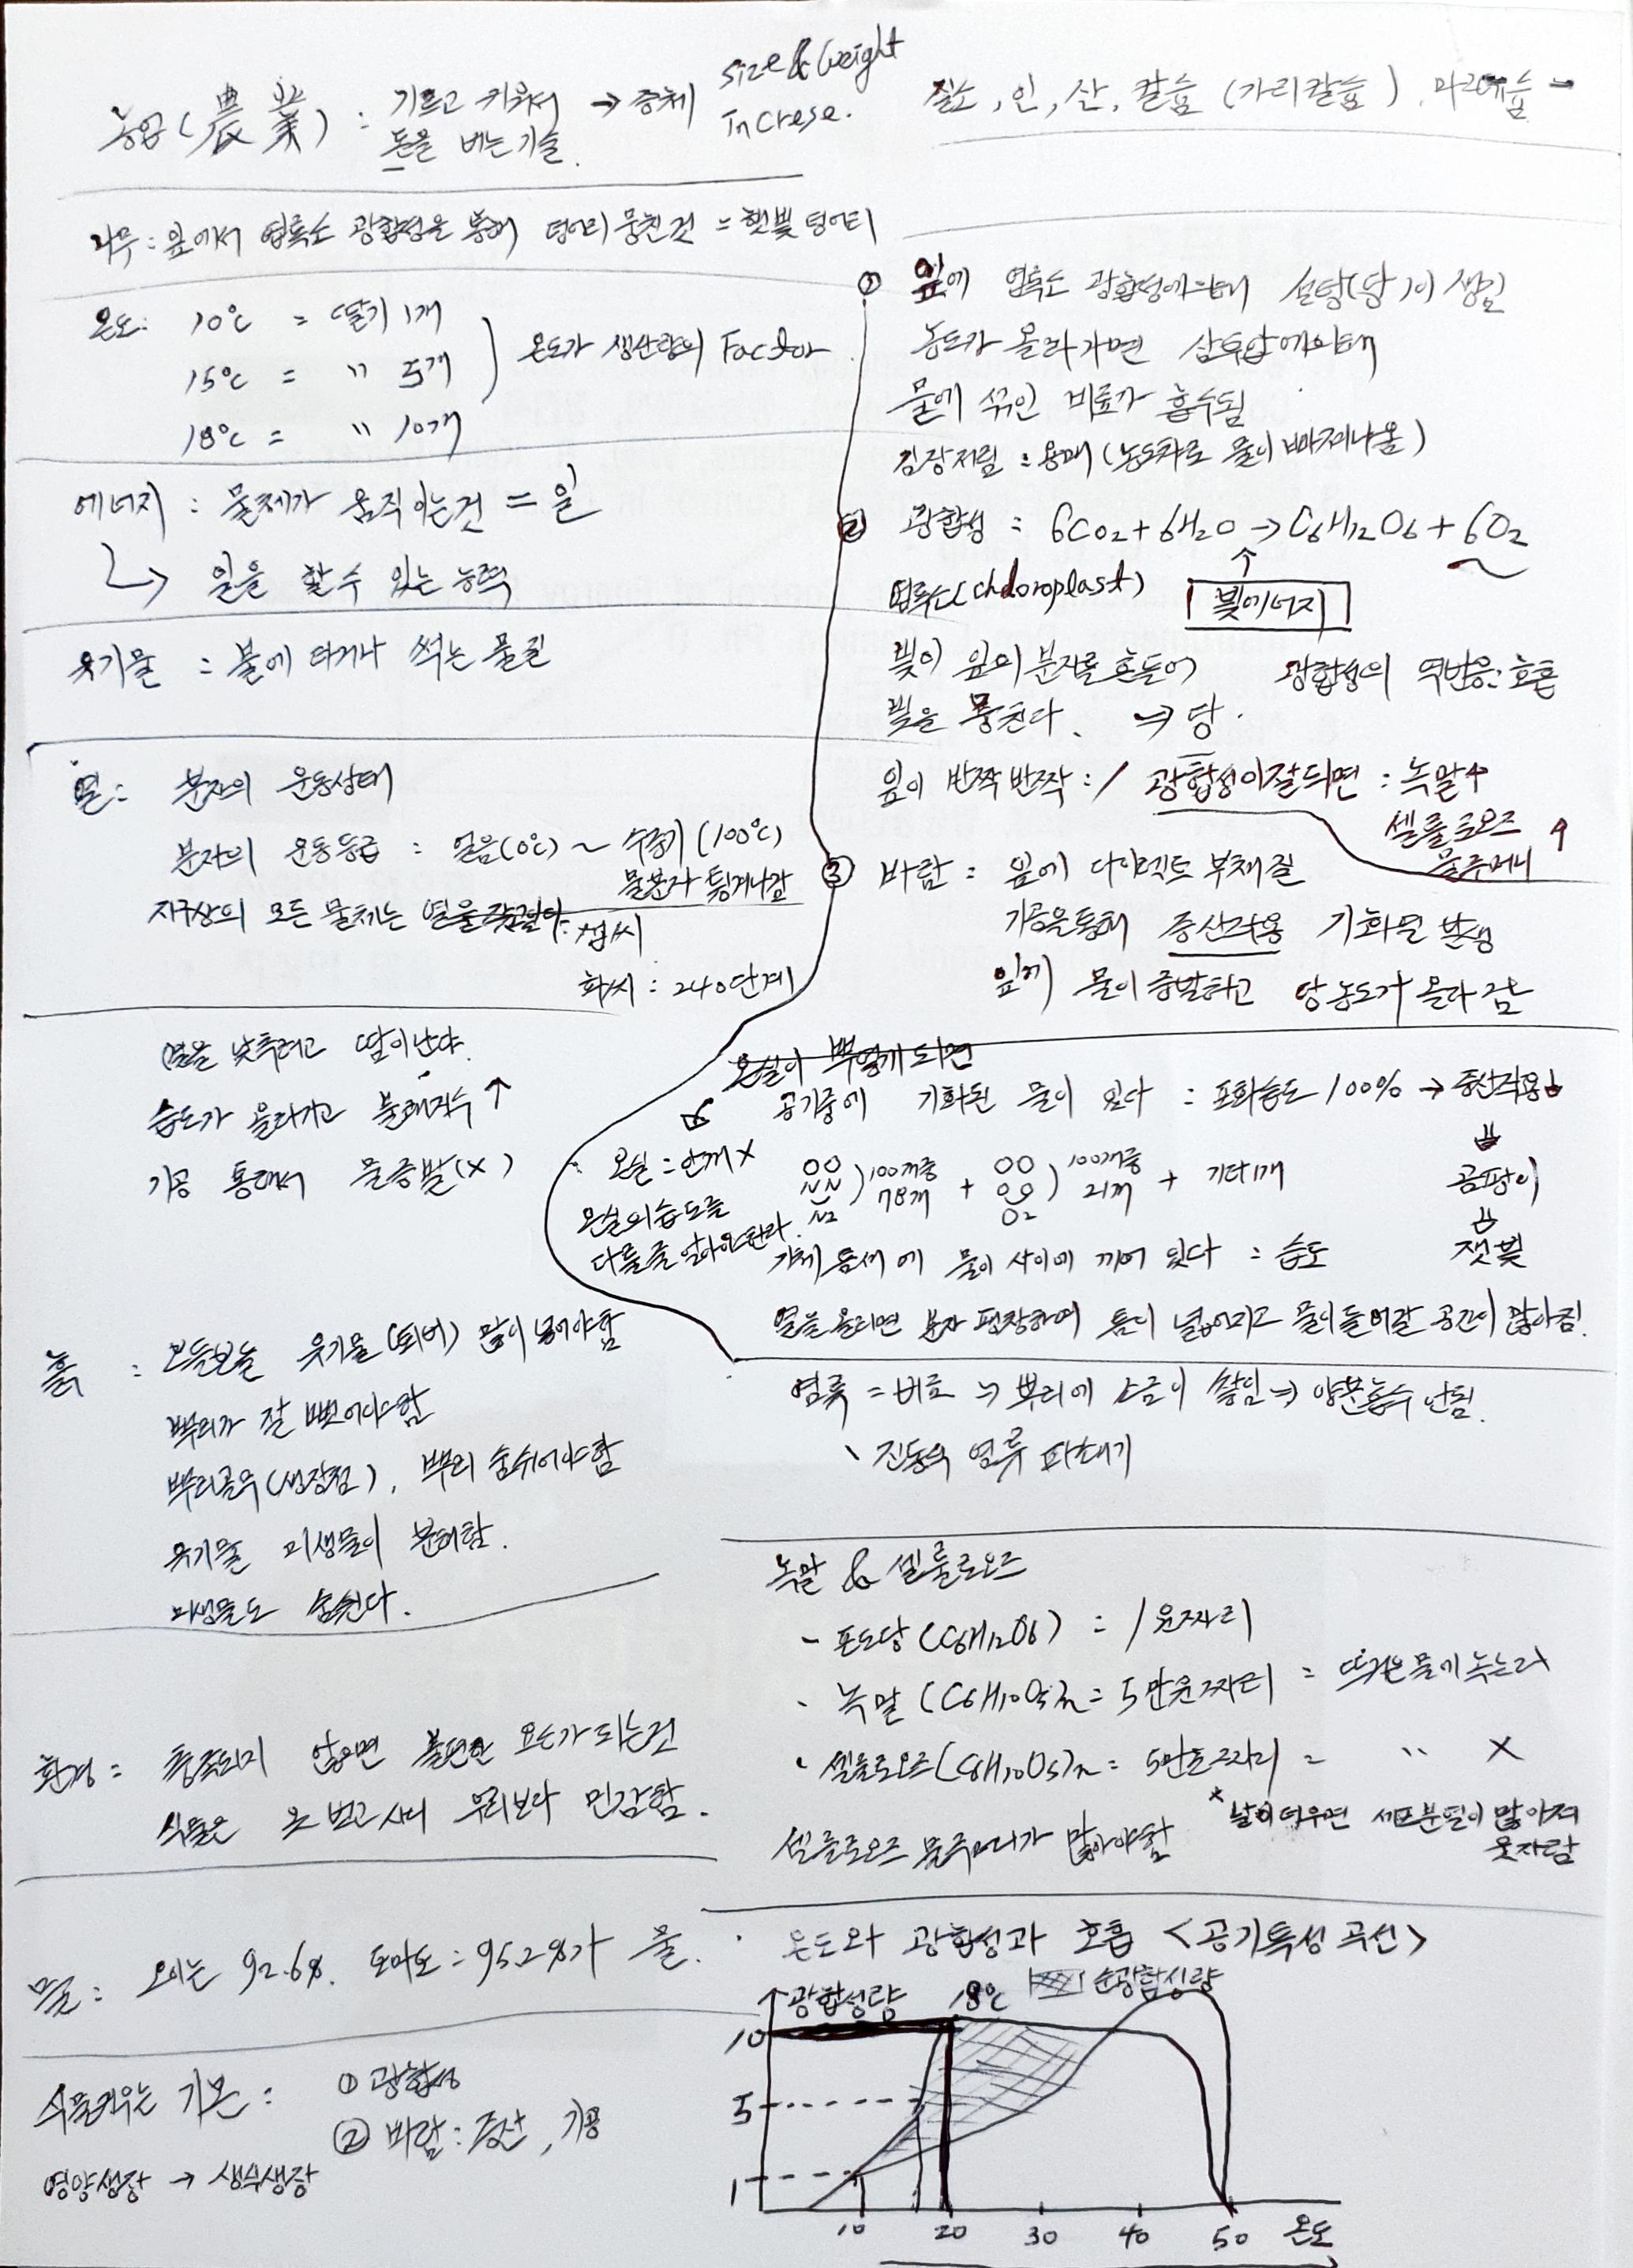 농업(農業) : 기르고 키워서 → 증체 size & weight Increse.
돈을 버는 기술.
나무 : 잎에서 엽록소 광합성을 통해 덩어리 뭉친것 = 햇빛 덩어리
온도: 10℃ = 딸기 1개
15℃ = 〃 5개
18℃ = 〃 10개
온도가 생산량의 Factor
에너지 : 물체가 움직이는건 = 일
↳ 일을 할 수 있는 능력
유기물 : 불에 타거나 썩는 물질
열 : 분자의 운동상태
분자의 운동등급 : 얼음(0℃) ~ 수증기(100℃)
물분자 튕겨나감
지구상의 모든 물체는 열을 갖고있다. 섭씨
화씨 : 240단계
열을 낮추려고 땀이 난다.
습도가 올라가고 불쾌지수 ↑
기공 통해서 물 증발(X)
흙 : 보들보들 유기물(퇴비) 많이 넣어야함
뿌리가 잘 뻗어야함
뿌리골무(생장점), 뿌리 숨쉬어야함
유기물 미생물이 분해함.
미생물도 숨쉰다.
환경 : 충족되지 않으면 불편한 요소가 되는것
식물은 옷 벗고 사니 우리보다 민감함.
물 : 오이는 92.6%. 토마토 : 95.2%가 물.
식물키우는 기본 : ① 광합성
② 바람 : 증산, 기공
영양생장 → 생식생장
질소, 인, 산, 칼슘 (가리칼슘), 마그네슘
① 잎에 엽록소 광합성에의해 설탕(당)이 생김
농도가 올라가면 삼투압에의해
물에 섞인 비료가 흡수됨
김장저림 : 용매(농도차로 물이 빠져나옴)
② 광합성 : 6CO2 + 6H2O → C6H12O6 + 6O2
↑
엽록소(Chloroplast) 빛에너지
빛이 잎의 분자를 흔들어 광합성의 역반응: 호흡
빛을 뭉친다. ⇒ 당.
잎이 반짝반짝 : / 광합성이 잘되면 : 녹말↑
셀룰로오즈 ↑
물주머니
③ 바람 : 잎에 다이렉트 부채질
기공을통해 증산작용 기화열 발생
잎에 물이 증발하고 당농도가 올라감
온실이 뿌옇게되면
공기중에 기화된 물이 있다 : 포화습도 100% → 증산작용↓
온실 : 안개 X
온실의 습도를
다룰줄 알아야한다.
NN ) 100개중 78개 + OO ) 100개중 21개 + 기타 1개
N2 O2
⇓
곰팡이
⇓
잿빛
기체 틈새에 물이 사이에 끼어 있다 : 습도
열을 올리면 분자 팽창하여 틈이 넓어지고 물이 들어갈 공간이 많아짐.
염류 = 비료 ⇒ 뿌리에 소금이 쌓임 ⇒ 양분흡수 안됨.
염류
녹말 & 셀룰로오즈
- 포도당(C6H12O6) : 1원짜리
- 녹말 (C6H10O5)n = 5만원짜리 = 뜨거운물에 녹는다
- 셀룰로오즈(C6H10O5)n = 5만원짜리 = 〃 X
셀룰로오즈 물주머니가 많아야함
* 날이 더우면 세포분열이 많아져
웃자람
온도와 광합성과 호흡 <공기특성 곡선>
광합성량 18℃ 순광합성량
10
5
1
10 20 30 40 50 온도